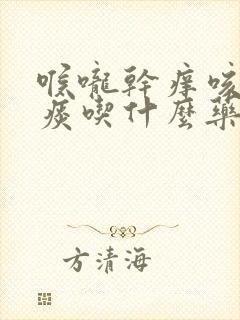 喉嚨幹癢咳
痰喫什麼藥
方清海